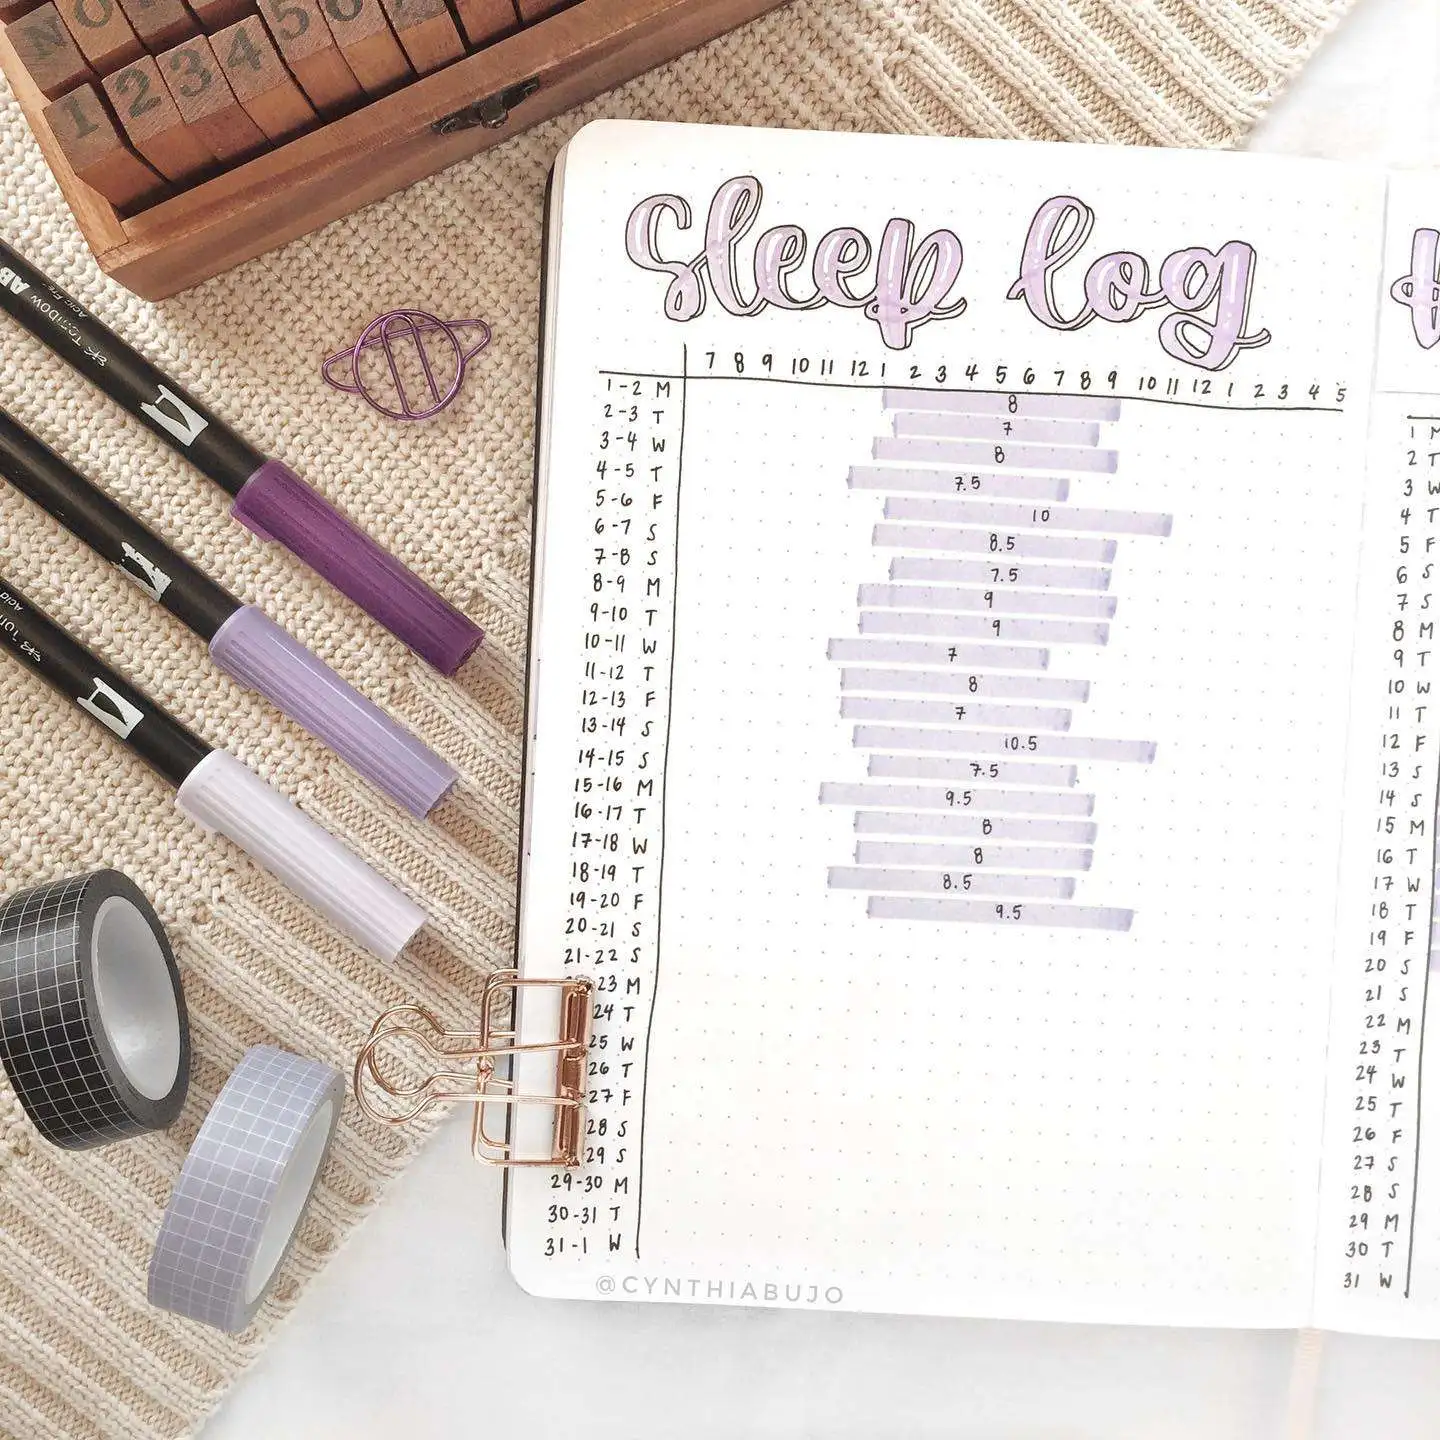 NO
1 2 3 4 5
TOMBOW AB
sleep log
7 8 9 10 11 12 1 2 3 4 5 6 7 8 9 10 11 12 1 2 3 4 5
1-2 M 8
2-3 T 7
3-4 W 8
4-5 T 7.5
5-6 F 10
6-7 S 8.5
7-8 S 7.5
8-9 M 9
9-10 T 9
10-11 W 7
11-12 T 8
12-13 F 7
13-14 S 10.5
14-15 S 7.5
15-16 M 9.5
16-17 T 8
17-18 W 8
18-19 T 8.5
19-20 F 9.5
20-21 S
21-22 S
23 M
24 T
25 W
26 T
-27 F
28 S
29 S
29-30 M
30-31 T
31-1 W
@CYNTHIABUJO
1 M
2 T
3 W
4 T
5 F
6 S
7 S
8 M
9 T
10 W
11 T
12 F
13 S
14 S
15 M
16 T
17 W
18 T
19 F
20 S
21 S
22 M
23 T
24 W
25 T
26 F
27 S
28 S
29 M
30 T
31 W